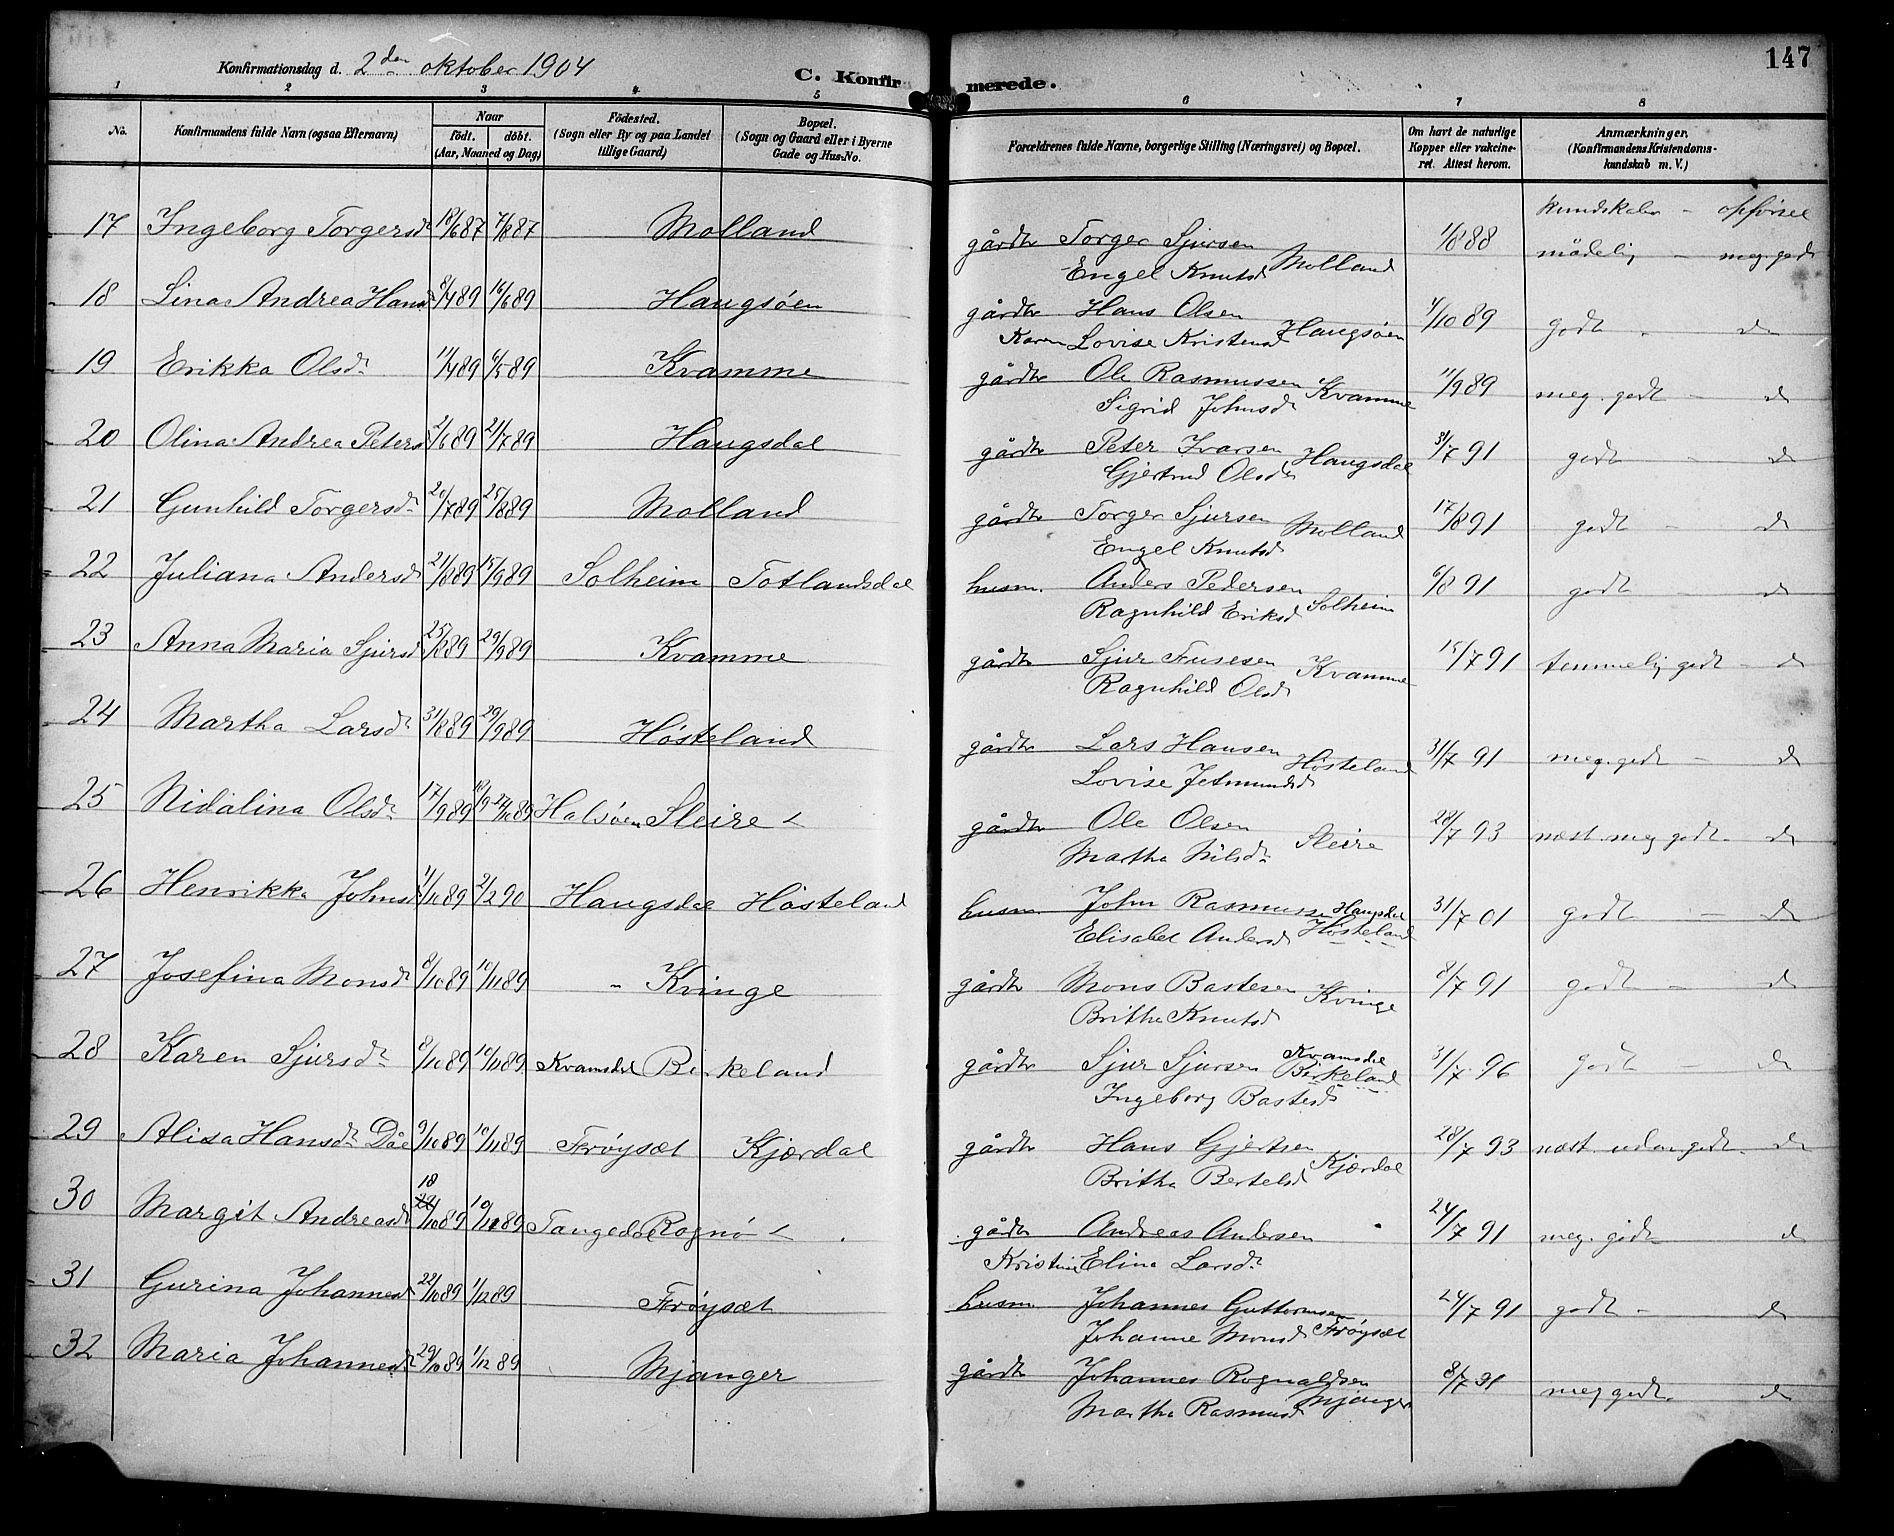 147
Konfirmationsdag d. 2den oktober 1904
C. Konfirmerede.
1 2 3 4 5 6 7 8
No.
Konfirmandens fulde Navn (ogsaa Efternavn)
Naar
født. døbt.
(Aar, Maaned og Dag)
Fødested.
(Sogn eller By og paa Landet
tillige Gaard)
Bopæl.
(Sogn og Gaard eller i Byerne
Gade og Hus-No.
Forældrenes fulde Navne, borgerlige Stilling (Næringsvei) og Bopæl.
Om havt de naturlige
Kopper eller vakcine-
ret. Attest herom.
Anmærkninger.
(Konfirmandens Kristendoms-
kundskab m. V.)
kundskaber - opførsel
17 Ingeborg Torgersdr 18/6 87 7/8 87 Molland gårdbr Torger Sjursen 1/8 88 mådelig - meg. godt
Engel Knutsd Molland
18 Lina Andrea Hansd 8/4 89 16/6 89 Haugsøen gårdbr Hans Olsen 4/10 89 godt - do
Karen Lovise Kristensd Haugsøen
19 Erikka Olsdr 11/4 89 6/5 89 Kvamme gårdbr Ole Rasmussen Kvamme 11/9 89 meg. godt - do
Sigrid Johnsdr
20 Olina Andrea Petersd 2/6 89 21/7 89 Haugsdal gårdbr Peter Ivarsen Haugsdal 31/7 91 godt - do
Gjertrud Olsdr
21 Gunhild Torgersdr 20/7 89 25/8 89 Molland gårdbr Torger Sjursen Molland 17/8 91 godt - do
Engel Knutsd
22 Juliana Andersd 21/8 89 15/9 89 Solheim Totlandsdal husm. Anders Pedersen 6/8 91 godt - do
Ragnhild Eriksd Solheim
23 Anna Maria Sjursd 25/8 89 29/9 89 Kvamme gårdbr Sjur Fusesen Kvamme 15/7 91 temmelig godt - do
Ragnhild Olsd
24 Martha Larsdr 31/8 89 29/9 89 Høsteland gårdbr Lars Hansen Høsteland 31/7 91 meg. godt - do
Lovise Jetmundsd
25 Nidalina Olsdr 17/9 89 Halsøen Sleire gårdbr Ole Olsen Sleire 28/7 93 næst meg godt - do
Martha Nilsdr
26 Henrikka Johnsd 1/10 89 2/2 90 Haugsdal Høsteland husm. John Rasmussen Haugsdal 31/7 01 godt - do
Elisabet Andersd Høsteland
27 Josefina Monsdr 8/10 89 10/11 89 " Kvinge gårdbr Mons Bastesen Kvinge 8/7 91 godt - do
Brithe Knutsd
28 Karen Sjursdr 8/10 89 10/11 89 Kvamsdal Birkeland gårdbr Sjur Sjursen Kvamsdal Birkeland 31/7 96 godt - do
Ingeborg Bastesdr
29 Alisa Hansdr Dåe 9/10 89 10/11 89 Frøyset Kjærdal gårdbr Hans Gjertsen Kjærdal 28/7 93 næst udm godt. - do
Britha Bertelsd
30 Margit Andreasdr 18/10 89 10/11 89 Tangedal Rognø gårdbr Andreas Andersen 24/7 91 meg. godt - do
Kristine Elina Larsdr
31 Gurina Johannesd 22/10 89 1/12 89 Frøyset husm. Johannes Guttormsen 24/7 91 godt - do
Johanne Monsd Frøyset
32 Maria Johannesdr 29/10 89 1/12 89 Mjanger gårdbr Johannes Rognaldsen 8/7 91 meg godt. - do
Martha Rasmusd Mjanger